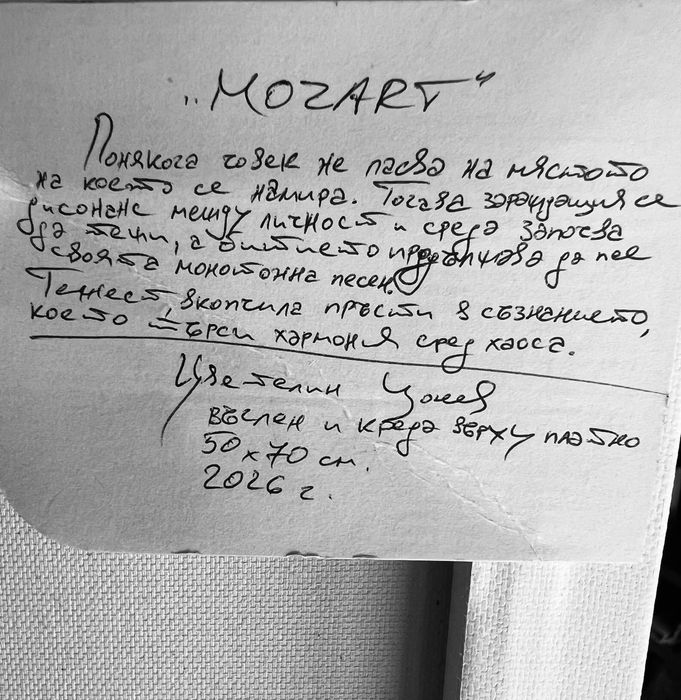 „MOZART“
Понякога човек не пасва на мястото
на което се намира. Тогава зараждащия се
дисонанс между личност и среда започва
да тежи, а битието продължава да пее
своята монотонна песен.
Тежест, вкопчила пръсти в съзнанието,
което търси хармония сред хаоса.
Цветелин Цонев
въглен и креда върху платно
50 x 70 см.
2026 г.